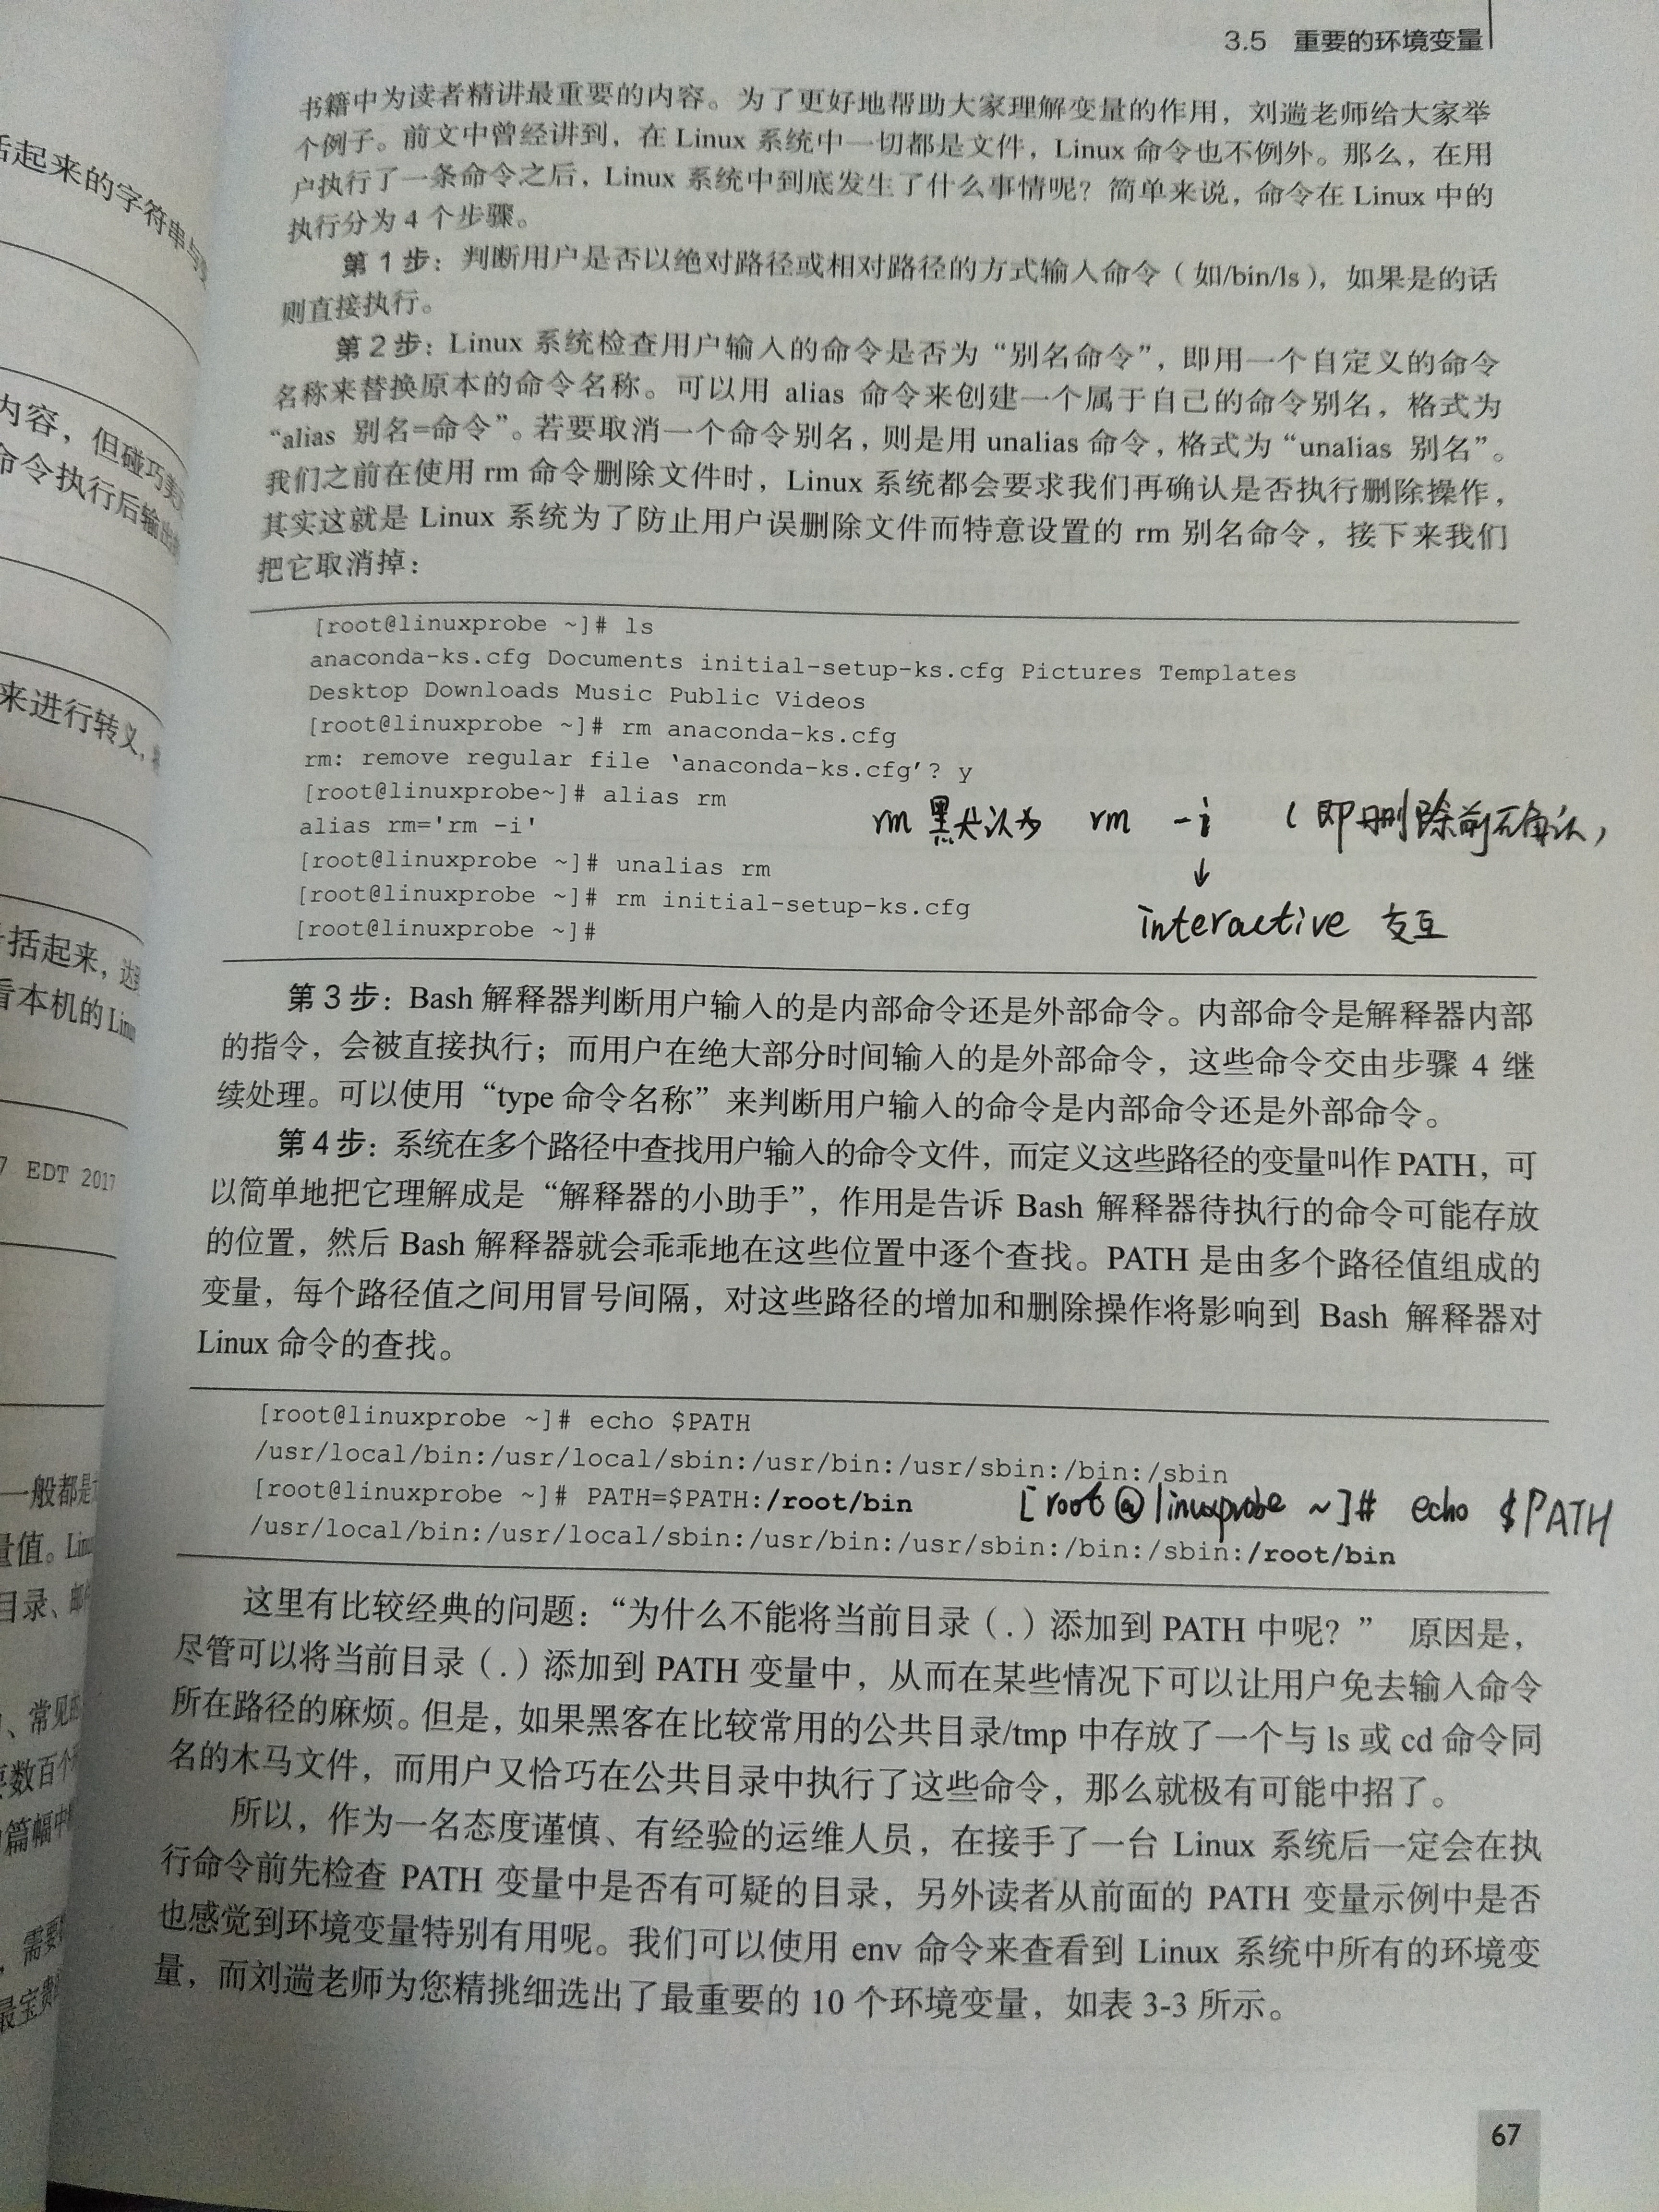 3.5 重要的环境变量
书籍中为读者精讲最重要的内容。为了更好地帮助大家理解变量的作用，刘遄老师给大家举
个例子。前文中曾经讲到，在 Linux 系统中一切都是文件，Linux 命令也不例外。那么，在用
户执行了一条命令之后，Linux 系统中到底发生了什么事情呢？简单来说，命令在 Linux 中的
执行分为 4 个步骤。
第 1 步：判断用户是否以绝对路径或相对路径的方式输入命令（如/bin/ls），如果是的话
则直接执行。
第 2 步：Linux 系统检查用户输入的命令是否为“别名命令”，即用一个自定义的命令
名称来替换原本的命令名称。可以用 alias 命令来创建一个属于自己的命令别名，格式为
“alias 别名=命令”。若要取消一个命令别名，则是用 unalias 命令，格式为“unalias 别名”。
我们之前在使用 rm 命令删除文件时，Linux 系统都会要求我们再确认是否执行删除操作，
其实这就是 Linux 系统为了防止用户误删除文件而特意设置的 rm 别名命令，接下来我们
把它取消掉：
[root@linuxprobe ~]# ls
anaconda-ks.cfg Documents initial-setup-ks.cfg Pictures Templates
Desktop Downloads Music Public Videos
[root@linuxprobe ~]# rm anaconda-ks.cfg
rm: remove regular file ‘anaconda-ks.cfg’? y
[root@linuxprobe~]# alias rm
alias rm='rm -i'
rm 默认为 rm -i （即删除前确认）
↓
interactive 交互
[root@linuxprobe ~]# unalias rm
[root@linuxprobe ~]# rm initial-setup-ks.cfg
[root@linuxprobe ~]#
第 3 步：Bash 解释器判断用户输入的是内部命令还是外部命令。内部命令是解释器内部
的指令，会被直接执行；而用户在绝大部分时间输入的是外部命令，这些命令交由步骤 4 继
续处理。可以使用“type 命令名称”来判断用户输入的命令是内部命令还是外部命令。
第 4 步：系统在多个路径中查找用户输入的命令文件，而定义这些路径的变量叫作 PATH，可
以简单地把它理解成是“解释器的小助手”，作用是告诉 Bash 解释器待执行的命令可能存放
的位置，然后 Bash 解释器就会乖乖地在这些位置中逐个查找。PATH 是由多个路径值组成的
变量，每个路径值之间用冒号间隔，对这些路径的增加和删除操作将影响到 Bash 解释器对
Linux 命令的查找。
[root@linuxprobe ~]# echo $PATH
/usr/local/bin:/usr/local/sbin:/usr/bin:/usr/sbin:/bin:/sbin
[root@linuxprobe ~]# PATH=$PATH:/root/bin
[root@linuxprobe ~]# echo $PATH
/usr/local/bin:/usr/local/sbin:/usr/bin:/usr/sbin:/bin:/sbin:/root/bin
这里有比较经典的问题：“为什么不能将当前目录（.）添加到 PATH 中呢？” 原因是，
尽管可以将当前目录（.）添加到 PATH 变量中，从而在某些情况下可以让用户免去输入命令
所在路径的麻烦。但是，如果黑客在比较常用的公共目录/tmp 中存放了一个与 ls 或 cd 命令同
名的木马文件，而用户又恰巧在公共目录中执行了这些命令，那么就极有可能中招了。
所以，作为一名态度谨慎、有经验的运维人员，在接手了一台 Linux 系统后一定会在执
行命令前先检查 PATH 变量中是否有可疑的目录，另外读者从前面的 PATH 变量示例中是否
也感觉到环境变量特别有用呢。我们可以使用 env 命令来查看到 Linux 系统中所有的环境变
量，而刘遄老师为您精挑细选出了最重要的 10 个环境变量，如表 3-3 所示。
67
括起来的字符串与
内容，但碰巧美
命令执行后输出
来进行转义，
括起来，达
看本机的 Linu
7 EDT 2017
一般都是
量值。Linu
目录、邮
、常见的
数百个
篇幅中
，需要
最宝贵